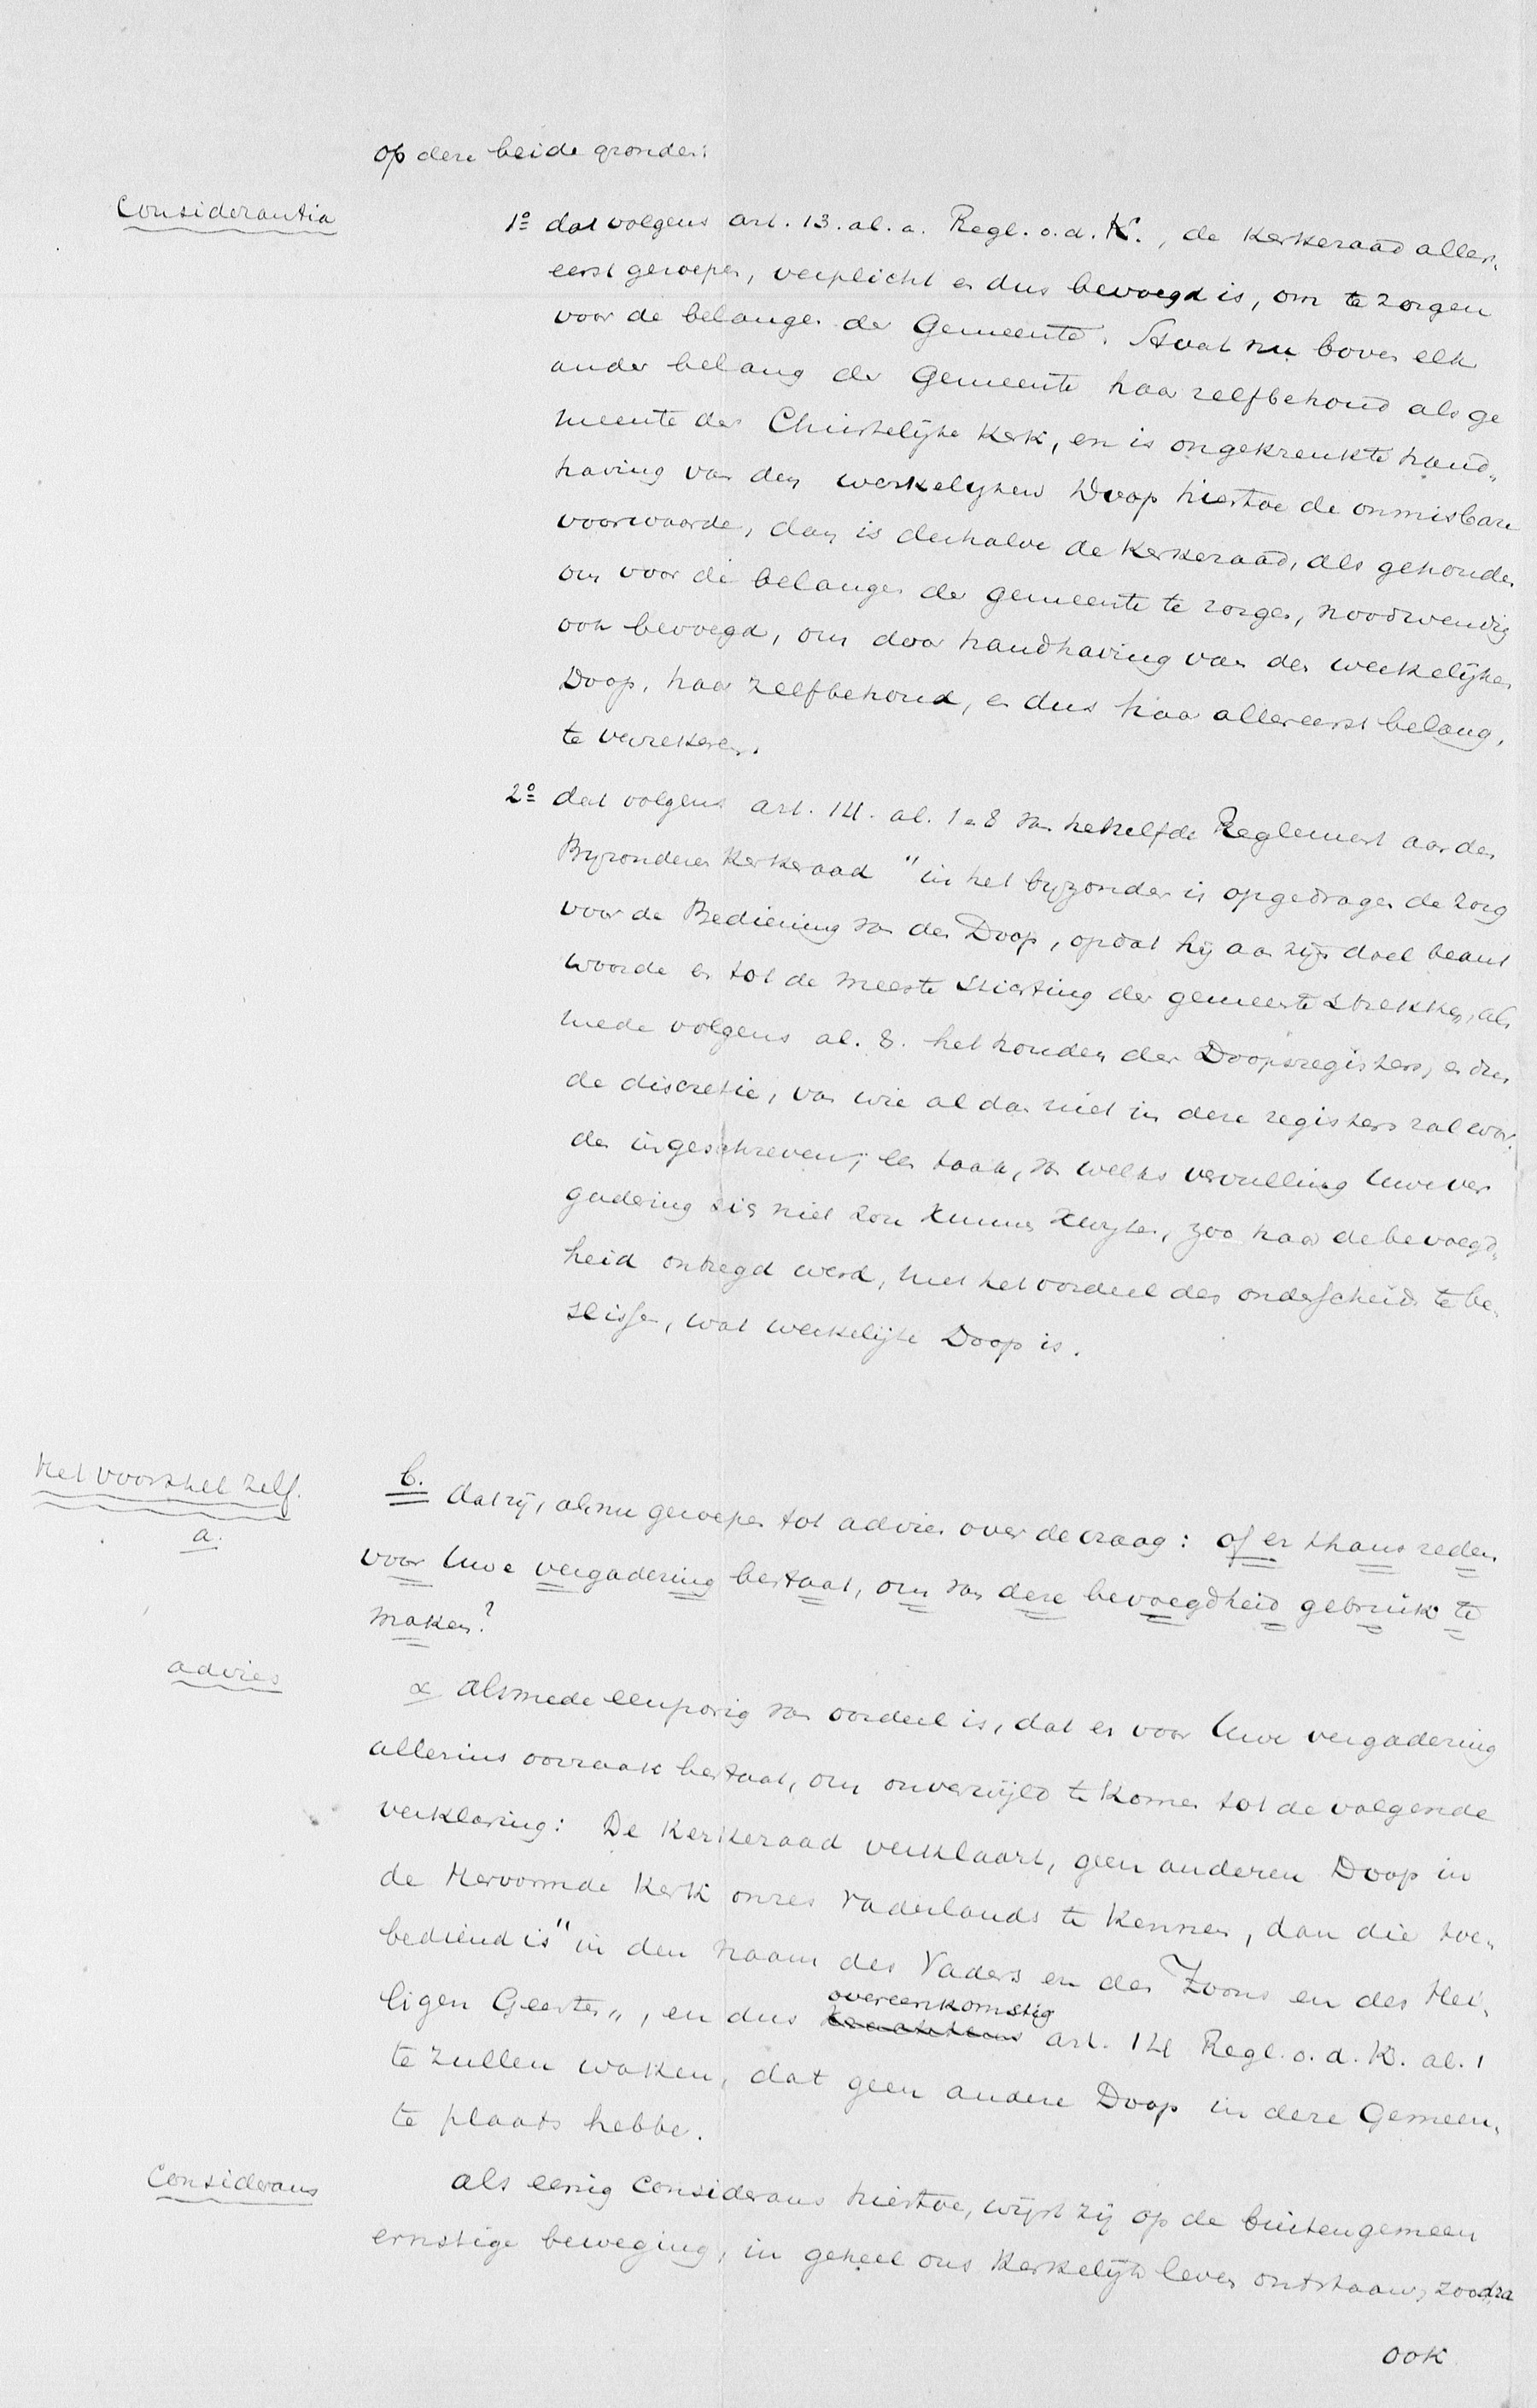 op deze beide gronden:
Considerantia
1º dat volgens art. 13. al. a. Regl. o. d. K., de Kerkeraad aller„
eerst geroepen, verplicht en dus bevoegd is, om te zorgen
voor de belangen der Gemeente. Staat nu boven elk
ander belang der Gemeente haar zelfbehoud als ge
meente der Christelijke Kerk, en is ongekrenkte hand„
having van den werkelijken Doop hiertoe de onmisbare
voorwaarde, dan is derhalve de Kerkeraad, als gehouden
om voor de belangen der gemeente te zorgen, noodwendig
ook bevoegd, om door handhaving van den werkelijken
Doop, haar zelfbehoud, en dus haar allereerst belang,
te verzekeren.
2º dat volgens art. 14. al. 1 en 8 van hetzelfde Reglement aan den
Byzonderen Kerkeraad "in het byzonder is opgedragen de zorg
voor de Bediening van den Doop, opdat hij aan zijn doel beant
woorde en tot de meeste stichting der gemeente strekken, als
mede volgens al. 8. het houden der Doopsregisters, en dus
de discretie, van wie al dan niet in deze registers zal wor„
den ingeschreven; een taak, van welks vervulling Uwe ver
gadering zich niet zou kunnen kwyten, zoo haar de bevoegd„
heid ontzegd werd, met het oordeel des onderscheids te be„
slissen, wat werkelijke Doop is.
Het voorstel zelf.
a.
b. dat zij, als nu geroepen tot advies over de vraag: of er thans reden
voor Uwe vergadering bestaat, om van deze bevoegdheid gebruik te
maken?
advies
α alsmede eenparig van oordeel is, dat er voor Uwe vergadering
allerzins oorzaak bestaat, om onverwijld te komen tot de volgende
verklaring: De Kerkeraad verklaart, geen anderen Doop in
de Hervormde Kerk onzes Vaderlands te kennen, dan die toe„
bediend is "in den naam des Vaders en des Zoons en des Hei„
ligen Geestes„, en dus overeenkomstig art. 14 Regl. o. d. K. al. 1
te zullen waken, dat geen andere Doop in deze Gemeen„
te plaats hebbe.
Considerans
als eenig considerans hiertoe, wijst zij op de buitengemeen
ernstige beweging, in geheel ons Kerkelijk leven ontstaan, zoodra
ook